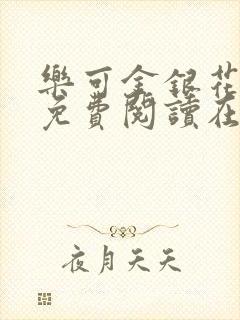 樂可金銀花
免費閱讀在
夜月天天